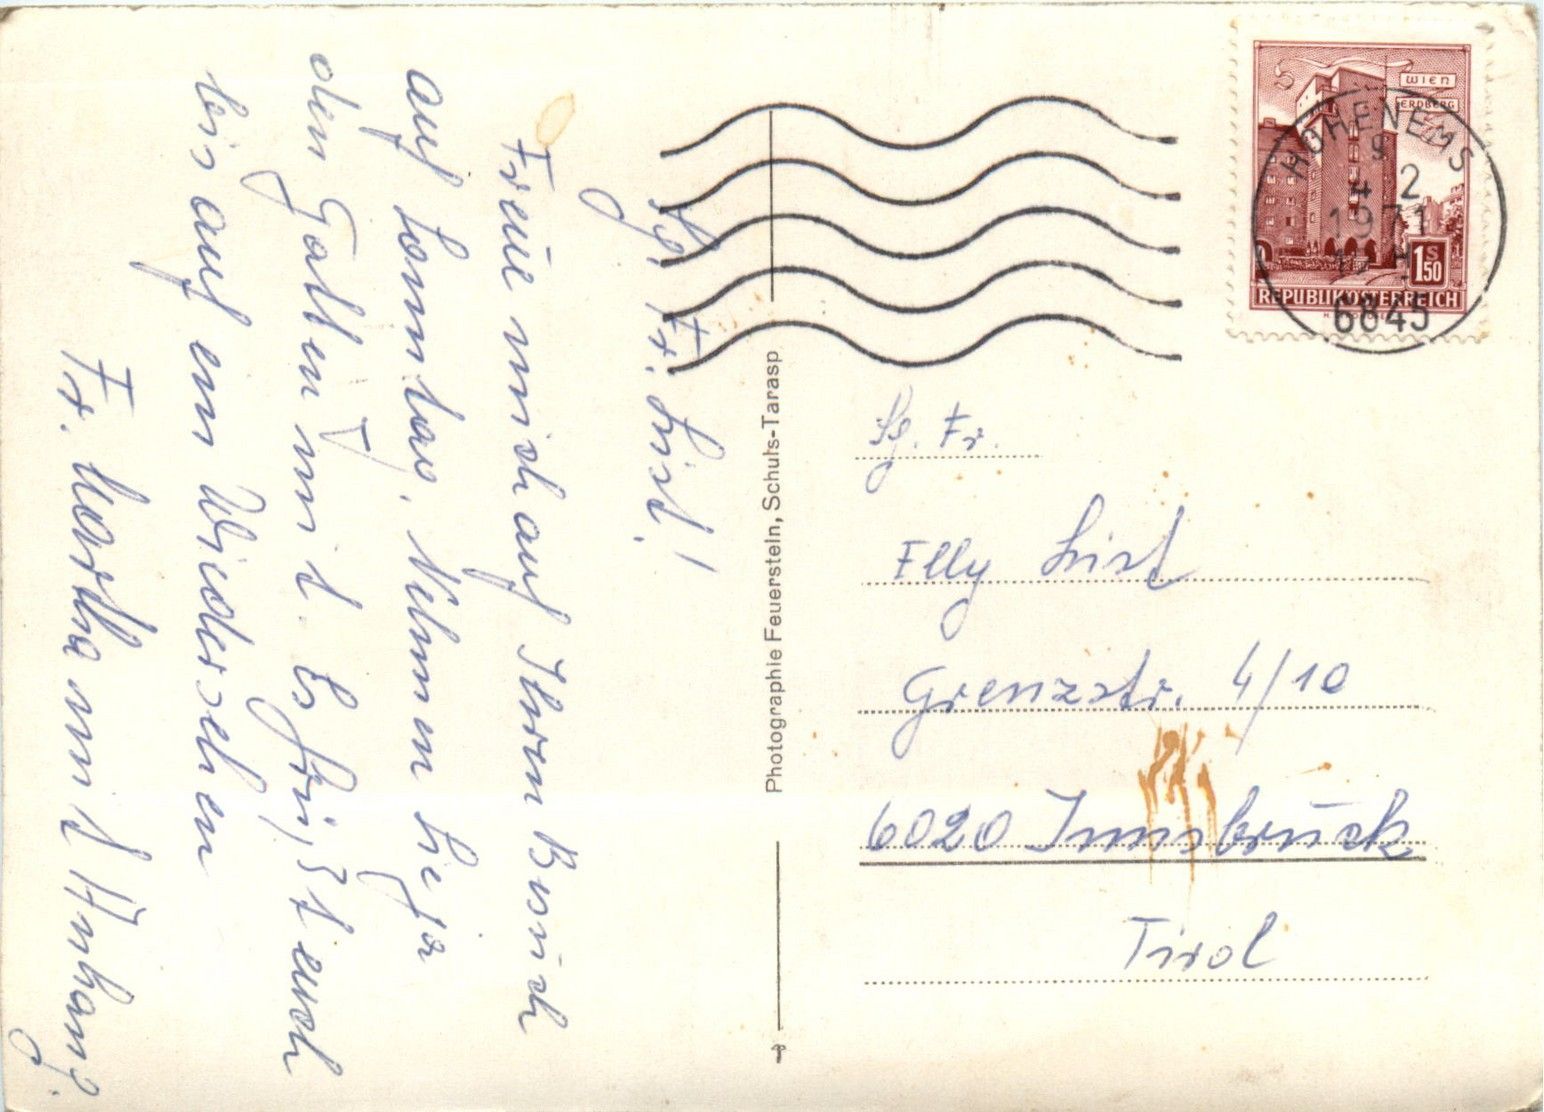 Sg. Fr. List!
Freue mich auf Ihren Besuch
auf Samstag. Nehmen Sie ja
den Gatten mit. Es grüßt euch
bis auf ein Wiedersehen
Fr. Martha und Anhang.
Photographie Feuerstein, Schuls-Tarasp
WIEN
ERDBERG
S
1 50
REPUBLIK ÖSTERREICH
HOHENEMS
9
4 2
1971
6845
Sg. Fr.
Elly List
Grenzstr. 4/10
6020 Innsbruck
Tirol